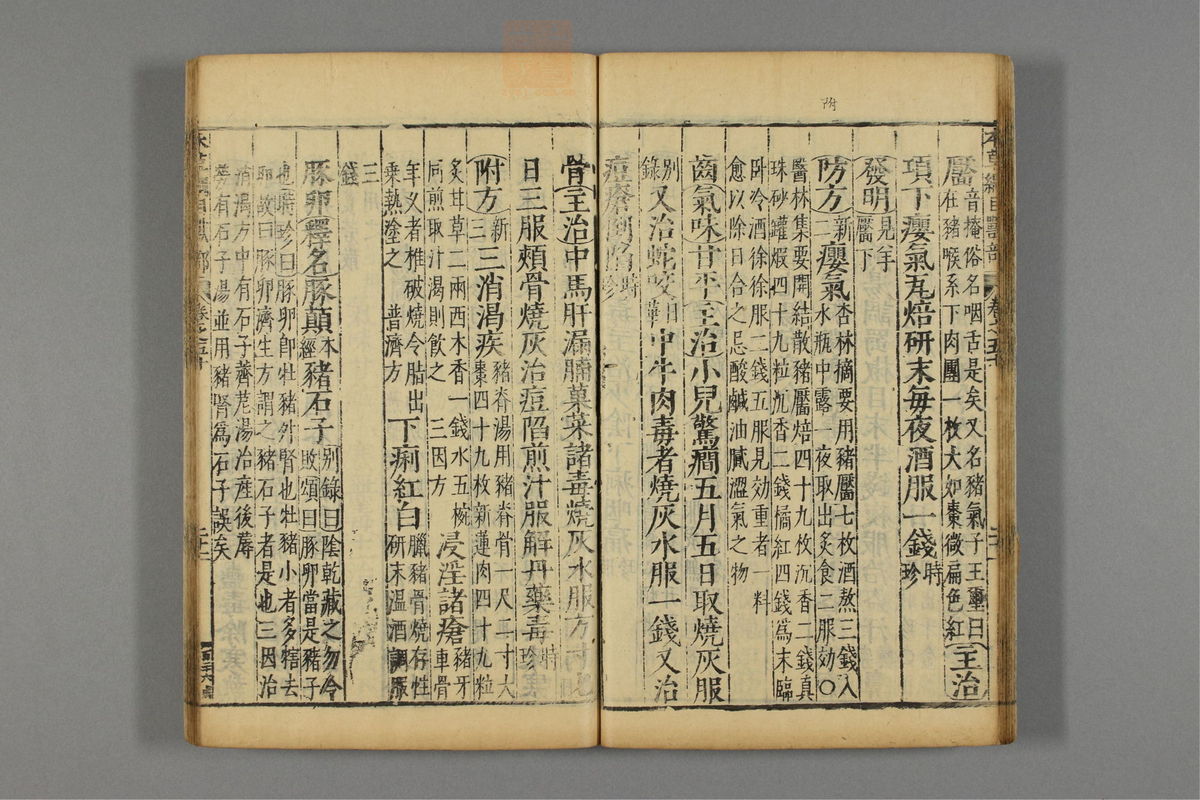 本草綱目獸部 卷之五十
靨 音掩俗名咽舌是矣又名豬氣子王璽曰
在豬喉系下肉團一枚大如棗微扁色紅 主治
項下癭氣瓦焙研末每夜酒服一錢時珍
發明 見羊
靨下
附方 新二 癭氣 杏林摘要用豬靨七枚酒熬三錢入
水瓶中露一夜取出炙食二服効○
醫林集要開結散豬靨焙四十九枚沉香二錢真
珠砂罐煆四十九粒沉香二錢橘紅四錢爲末臨
卧冷酒徐徐服二錢五服見効重者一料
愈以除日合之忌酸鹹油膩澀氣之物
齒氣味甘平主治小兒驚癇五月五日取燒灰服
別錄又治蛇咬日華中牛肉毒者燒灰水服一錢又治
痘瘡倒陷時珍
骨主治中馬肝漏脯菓菜諸毒燒灰水服方寸匕
日三服頰骨燒灰治痘陷煎汁服解丹藥毒時珍
附方 新三 三消渴疾 豬脊湯用豬脊骨一尺二寸大
棗四十九枚新蓮肉四十九粒
炙甘草二兩西木香一錢水五椀
同煎取汁渴則飲之 三因方 浸淫諸瘡 豬牙車骨
年久者椎破燒令脂出
乘熱塗之 普濟方 下痢紅白 臘豬骨燒存性
研末温酒調服
三錢
豚卵釋名豚顛本經豬石子 別錄曰陰乾藏之勿令
敗頌曰豚卵當是豬子
也時珍曰豚卵卽牡豬外腎也牡豬小者多犗去
卵故曰豚卵濟生方謂之豬石子者是也三因治
消渴方中有石子薺苨湯治産後蓐
勞有石子湯並用豬腎爲石子誤矣
本草綱目獸部 卷之五十